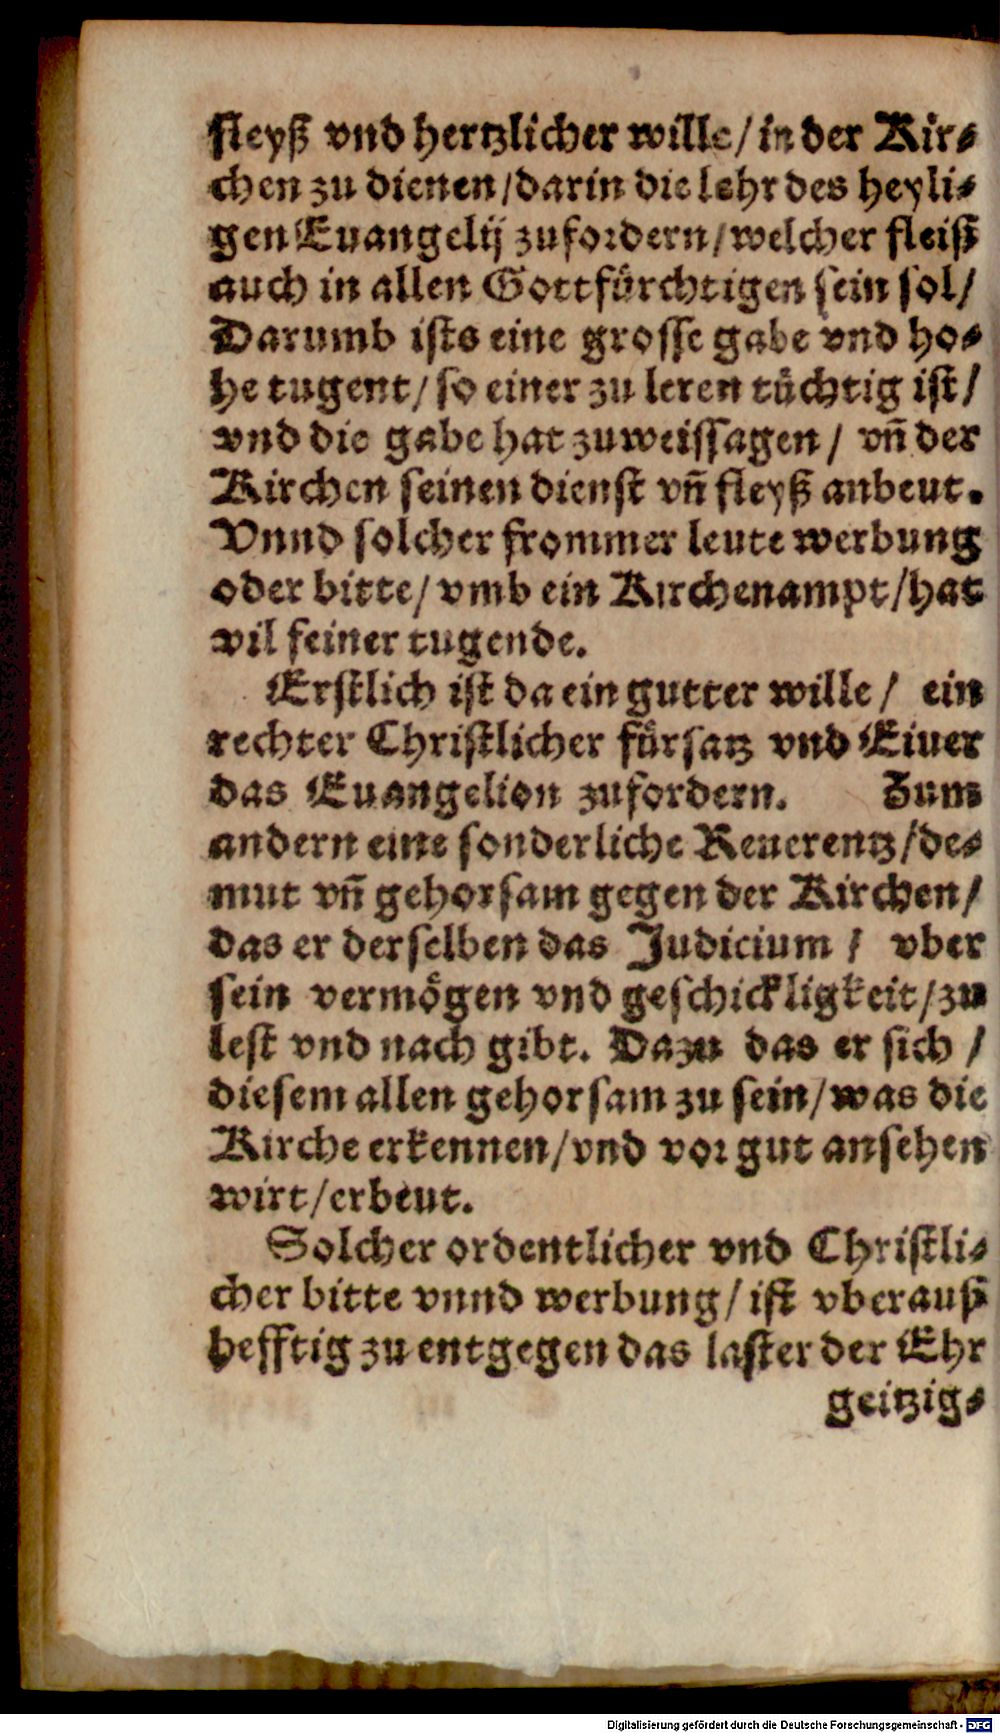 fleyß vnd hertzlicher wille/ in der Kir⸗
chen zu dienen/darin die lehr des heyli⸗
gen Euangelij zufordern/welcher fleiß
auch in allen Gottfürchtigen sein sol/
Darumb ists eine grosse gabe vnd ho⸗
he tugent/ so einer zu leren tüchtig ist/
vnd die gabe hat zuweissagen/ vñ der
Kirchen seinen dienst vñ fleyß anbeut.
Vnnd solcher frommer leute werbung
oder bitte/ vmb ein Kirchenampt/hat
vil feiner tugende.
Erstlich ist da ein gutter wille/ ein
rechter Christlicher fürsatz vnd Eiuer
das Euangelion zufordern. Zum
andern eine sonderliche Reuerentz/de⸗
mut vñ gehorsam gegen der Kirchen/
das er derselben das Judicium/ vber
sein vermögen vnd geschickligkeit/zu
lest vnd nach gibt. Dazu das er sich/
diesem allen gehorsam zu sein/was die
Kirche erkennen/vnd vor gut ansehen
wirt/erbeut.
Solcher ordentlicher vnd Christli⸗
cher bitte vnnd werbung/ ist vberauß
hefftig zu entgegen das laster der Ehr
geitzig⸗
Digitalisierung gefördert durch die Deutsche Forschungsgemeinschaft - DFG